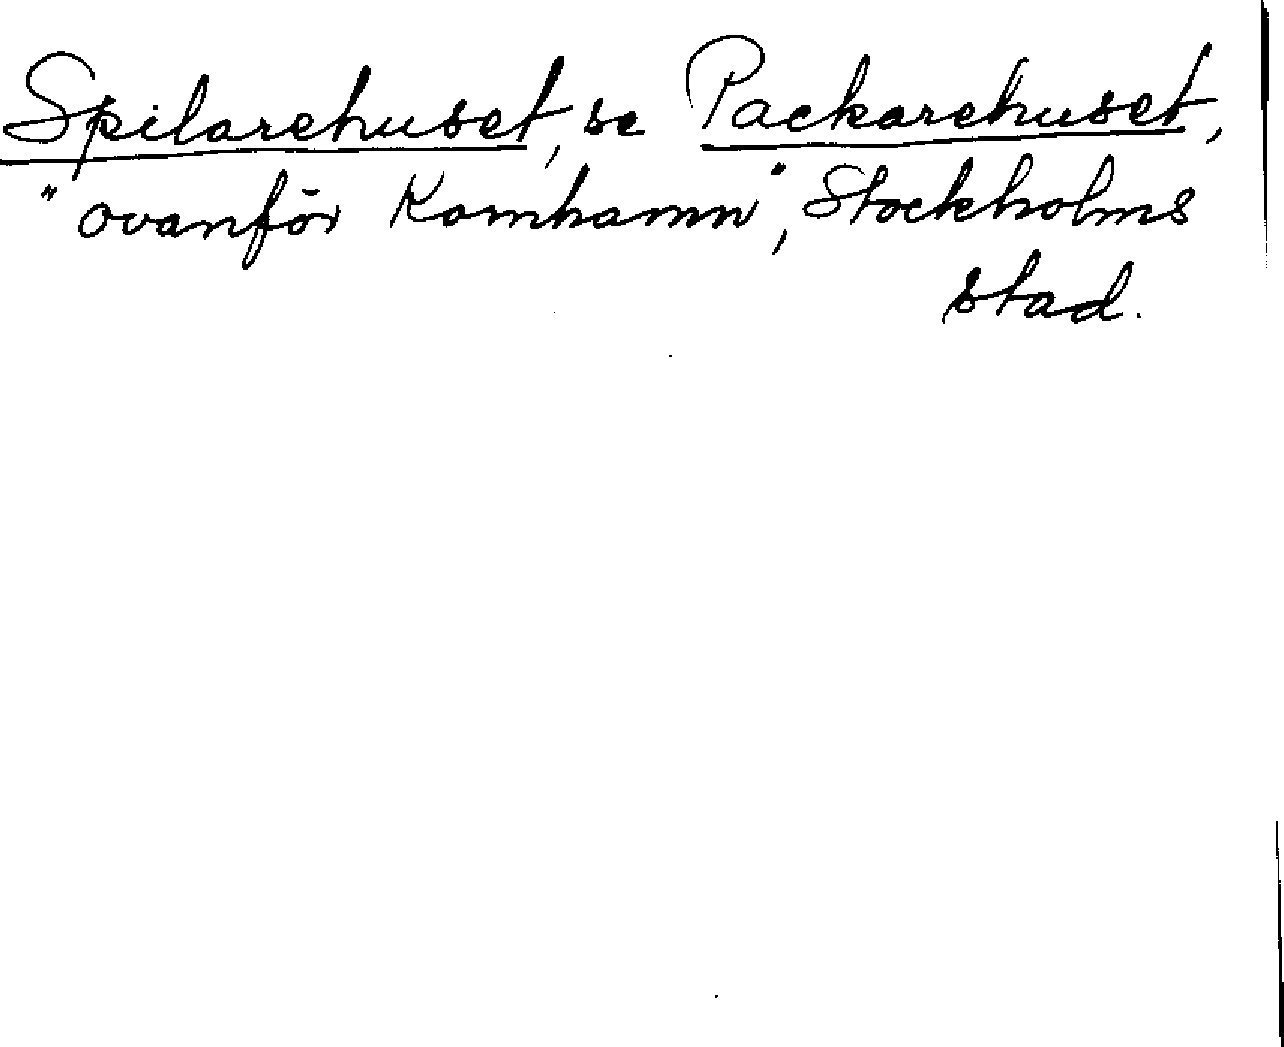 Spilarehuset, se Packarehuset,
"ovanför Kornhamn", Stockholms
stad.